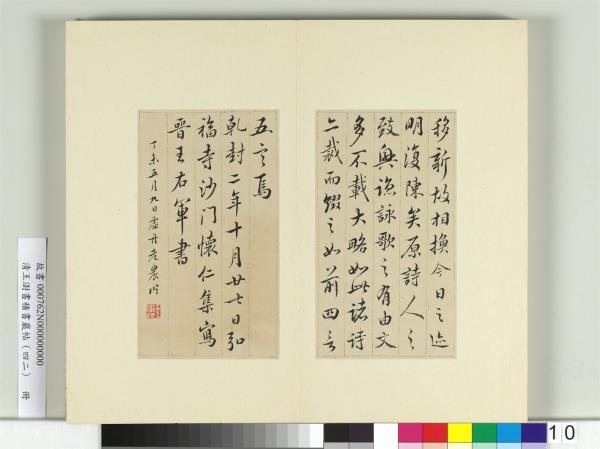 移新故相換今日之迹
明復陳矣原詩人之
致興諒詠歌之有由文
多不載大略如此諸詩
亦裁而綴之如前四言
五言焉
乾封二年十月廿七日弘
福寺沙门懷仁集寫
晉王右軍書
丁未五月九日虛舟老農臨
故書000762N000000000
清王澍書積書巖帖（四二） 冊
10